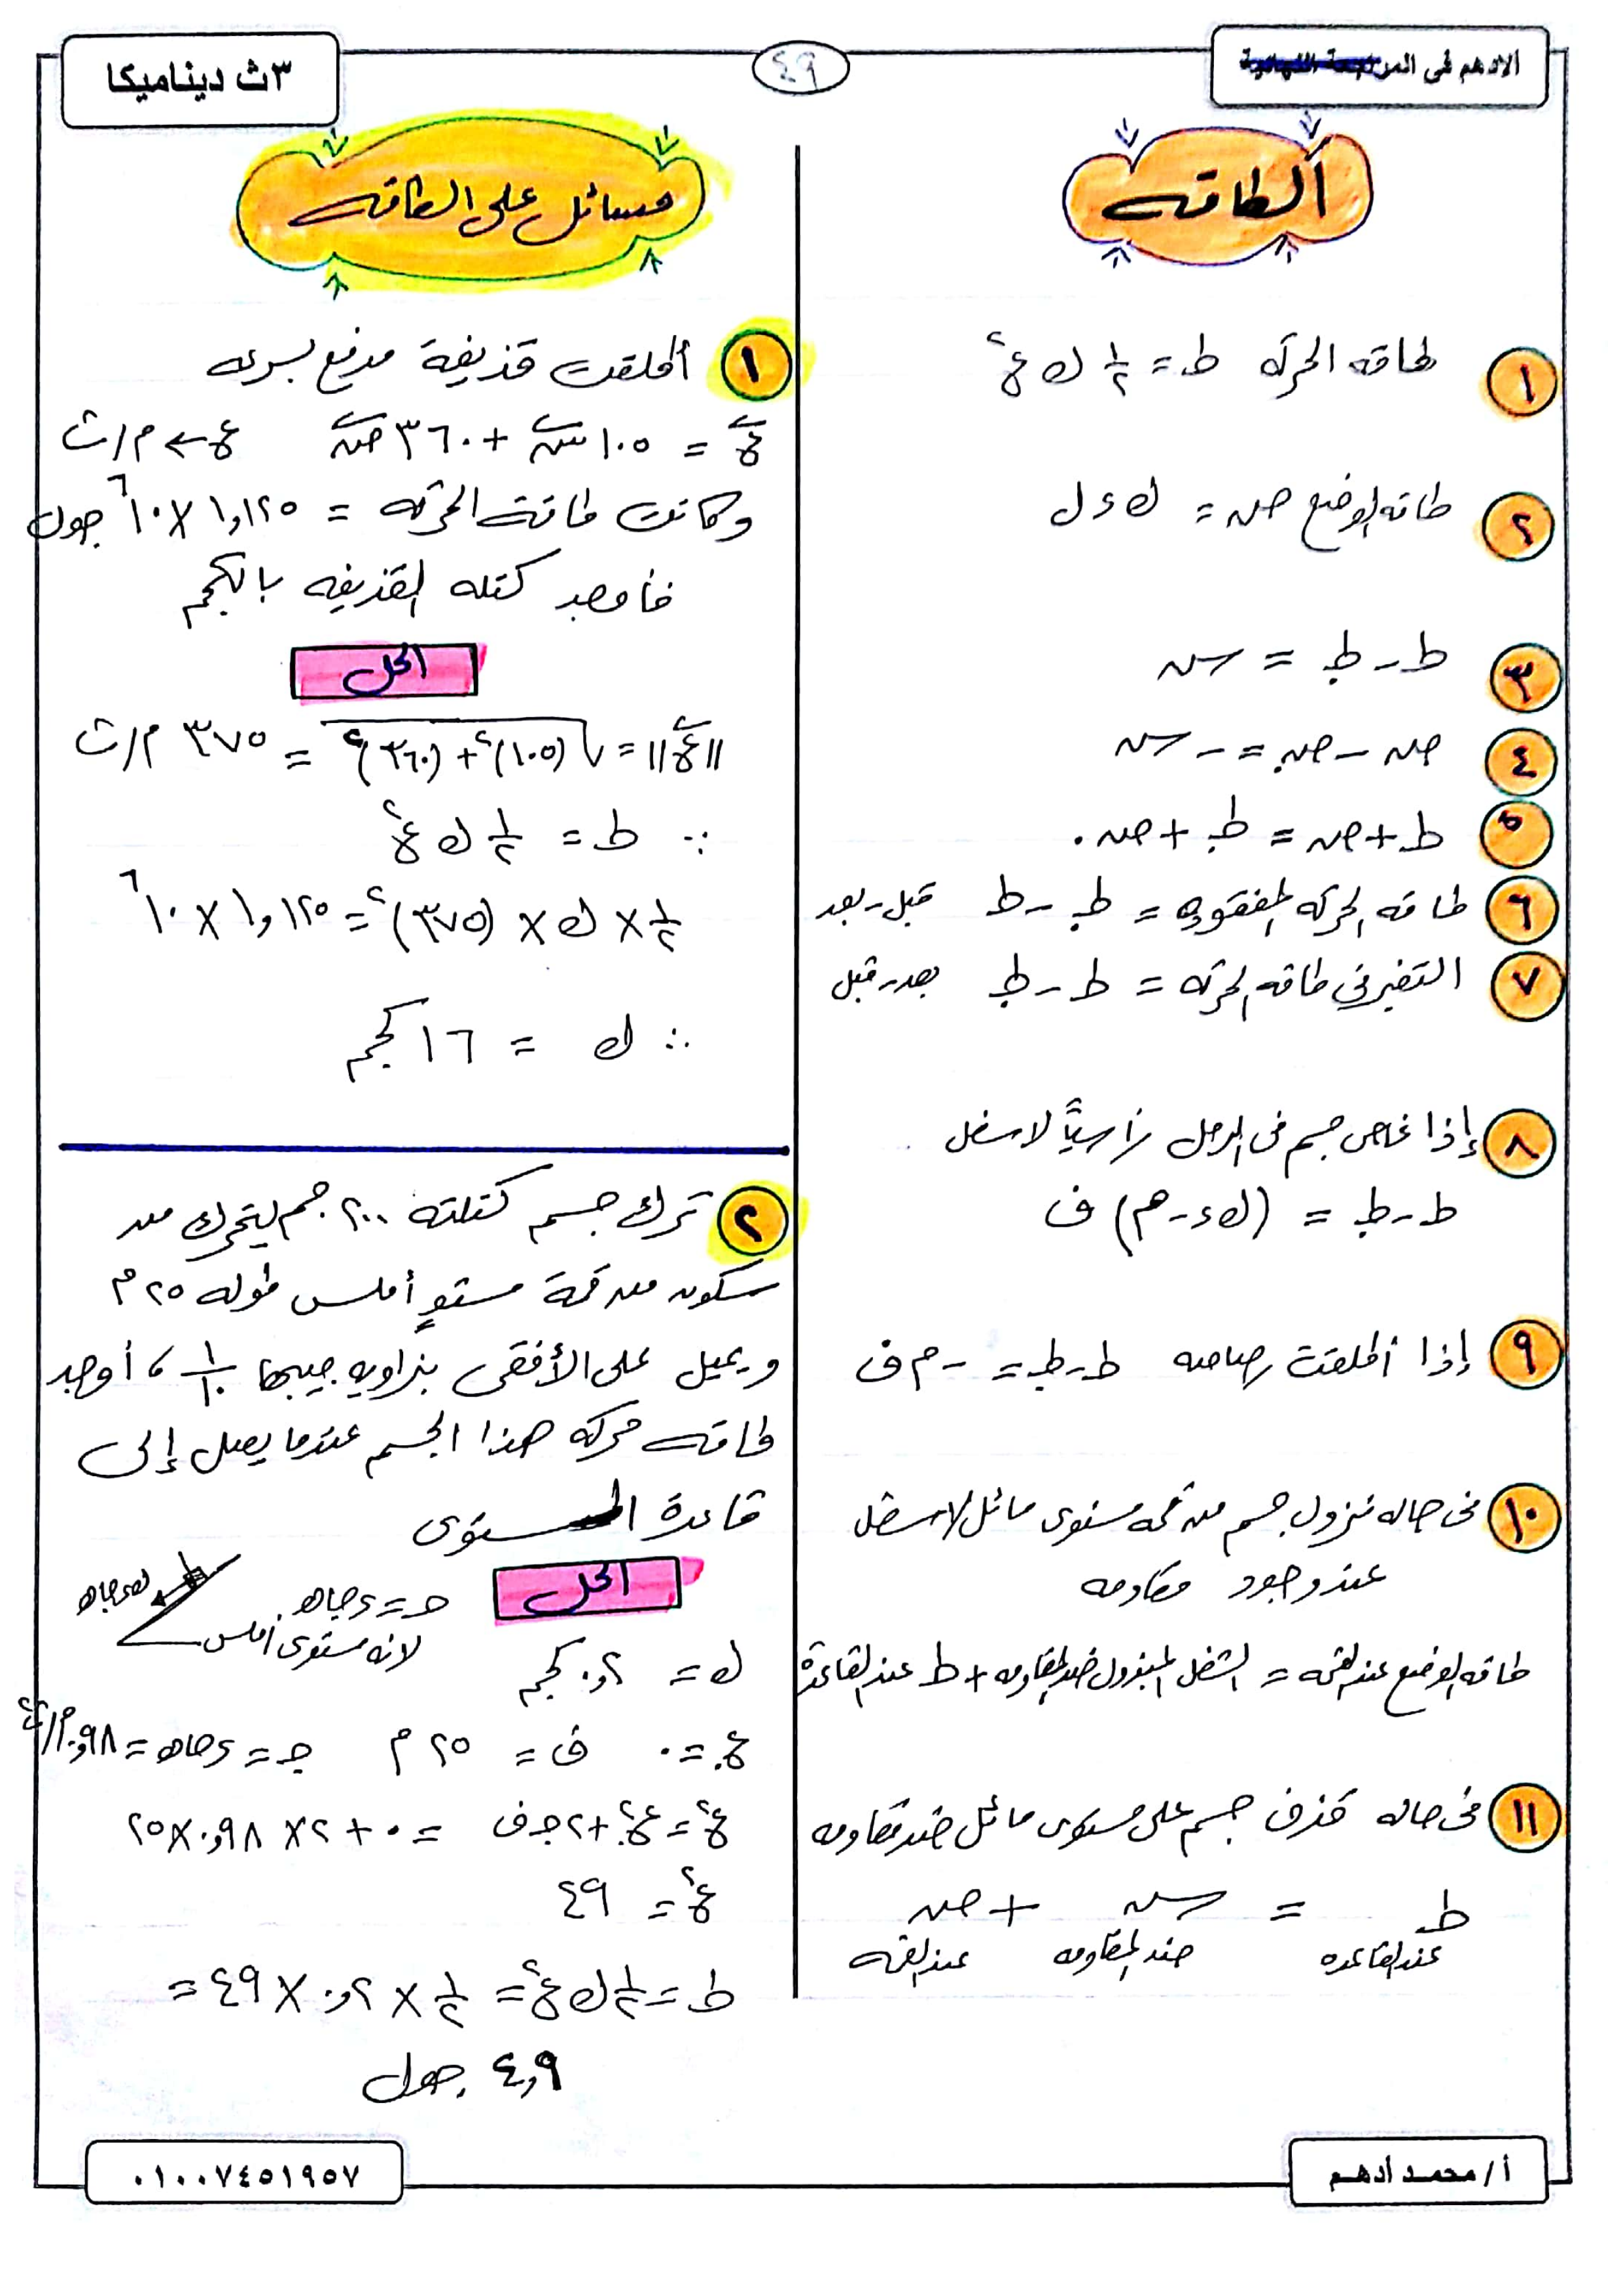 الادهم فى المراجعة النهائية
٤٩
٣ث ديناميكا
الطاقه
١ طاقه الحركه ط = ١/٢ ك ع٢
٢ طاقه الوضع ض = ك ء ل
٣ ط - ط. = ش
٤ ض - ض. = - ش
٥ ط + ض = ط. + ض.
٦ طاقه الحركه المفقوده = ط. - ط قبل - بعد
٧ التغير فى طاقه الحركه = ط - ط. بعد - قبل
٨ إذا غاص جسم فى الرمل رأسياً لاسفل
ط - ط. = (ك ء - م) ف
٩ إذا أطلقت رصاصه ط - ط. = - م ف
١٠ فى حاله نزول جسم من قمه مستوى مائل لاسفل
عند وجود مقاومه
طاقه الوضع عند القمه = الشغل المبذول ضد المقاومه + ط عند القاعدة
١١ فى حاله قذف جسم على مستوى مائل ضد مقاومه
ط = ش + ض
عند القاعده ضد المقاومه عند القمه
مسائل على الطاقه
١ أطلقت قذيفة مدفع بسرعه
ع = ١٠٥ س + ٣٦٠ ص ع ← م/ث
وكانت طاقة الحركه = ١,١٢٥ × ١٠٦ جول
فأوجد كتله القذيفه بالكجم
الحل
||ع|| = √(١٠٥)٢ + (٣٦٠)٢ = ٣٧٥ م/ث
∵ ط = ١/٢ ك ع٢
١/٢ × ك × (٣٧٥)٢ = ١,١٢٥ × ١٠٦
∴ ك = ١٦ كجم
٢ ترك جسم كتلته ٢٠٠ جم ليتحرك من
سكون من قمة مستوٍ أملس طوله ٢٥ م
ويميل على الأفقى بزاويه جيبها ١/١٠ ، أوجد
طاقه حركه هذا الجسم عندما يصل إلى
قاعدة المستوى
الحل
ج = ء جاه
لانه مستوى أملس
ك ء جاه
ك = ٠,٢ كجم
ع. = ٠ ف = ٢٥ م ج = ء جاه = ٠,٩٨ م/ث٢
ع٢ = ع.٢ + ٢ ج ف = ٠ + ٢ × ٠,٩٨ × ٢٥
ع٢ = ٤٩
ط = ١/٢ ك ع٢ = ١/٢ × ٠,٢ × ٤٩ =
٤,٩ جول
أ/ محمد أدهم
٠١٠٠٧٤٥١٩٥٧